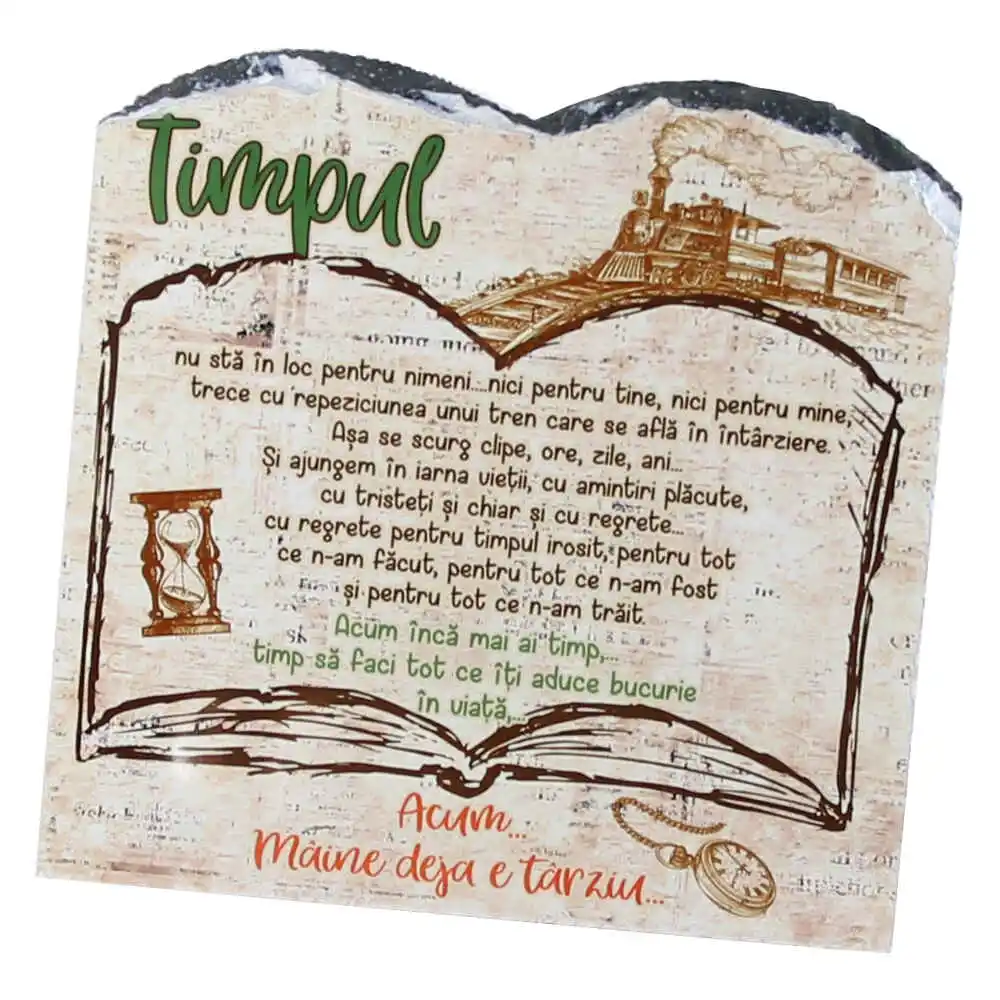 Timpul
nu stă în loc pentru nimeni....nici pentru tine, nici pentru mine,
trece cu repeziciunea unui tren care se află în întârziere.
Așa se scurg clipe, ore, zile, ani...
Și ajungem în iarna vieții, cu amintiri plăcute,
cu tristeți și chiar și cu regrete...
cu regrete pentru timpul irosit, pentru tot
ce n-am făcut, pentru tot ce n-am fost
și pentru tot ce n-am trăit.
Acum încă mai ai timp,...
timp să faci tot ce îți aduce bucurie
în viață,...
Acum...
Mâine deja e târziu...